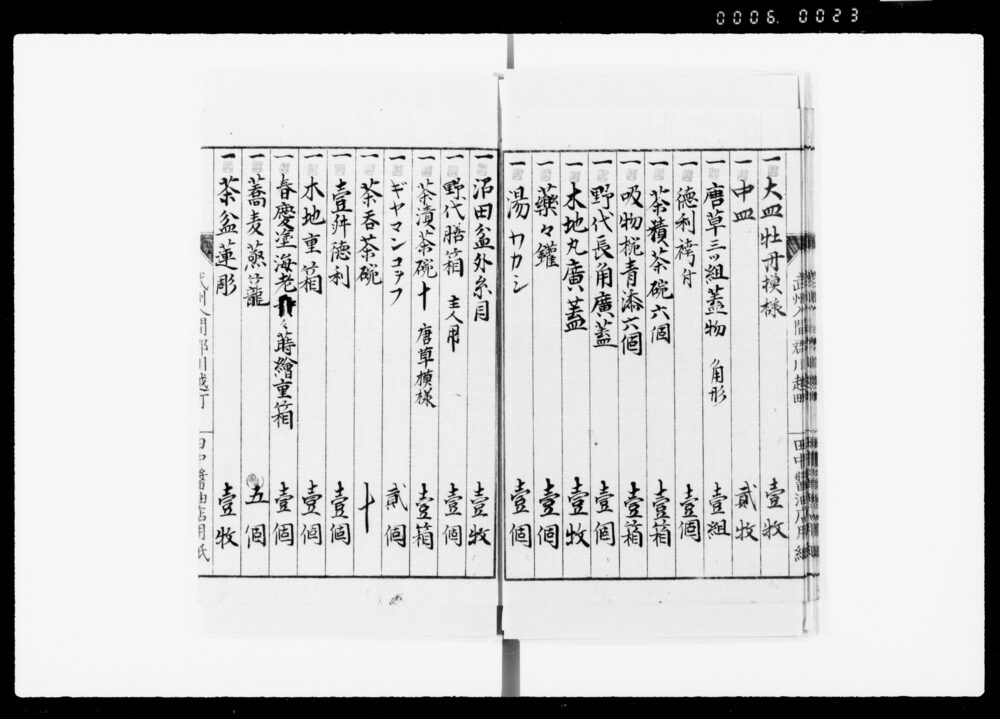 0006. 0023
武州入間郡川越町 田中醤油店用紙
一 大皿牡丹模様 壹牧
一 中皿 貳牧
一 唐草三ッ組蓋物 角形 壹組
一 德利袴付 壹個
一 茶積茶碗六個 壹箱
一 吸物椀青漆六個 壹箱
一 野代長角廣蓋 壹個
一 木地丸廣蓋 壹牧
一 藥々鑵 壹個
一 湯ワカシ 壹個
一 沼田盆外糸目 壹牧
一 野代膳箱 主人用 壹個
一 茶漬茶碗十 唐草模様 壹箱
一 ギヤマンコップ 貳個
一 茶呑茶碗 十
一 壹舛德利 壹個
一 木地重箱 壹個
一 春慶塗海老蒔繪重箱 壹個
一 蕎麦蒸籠 五個
一 茶盆蓮彫 壹牧
武州入間郡川越町 田中醤油店用紙